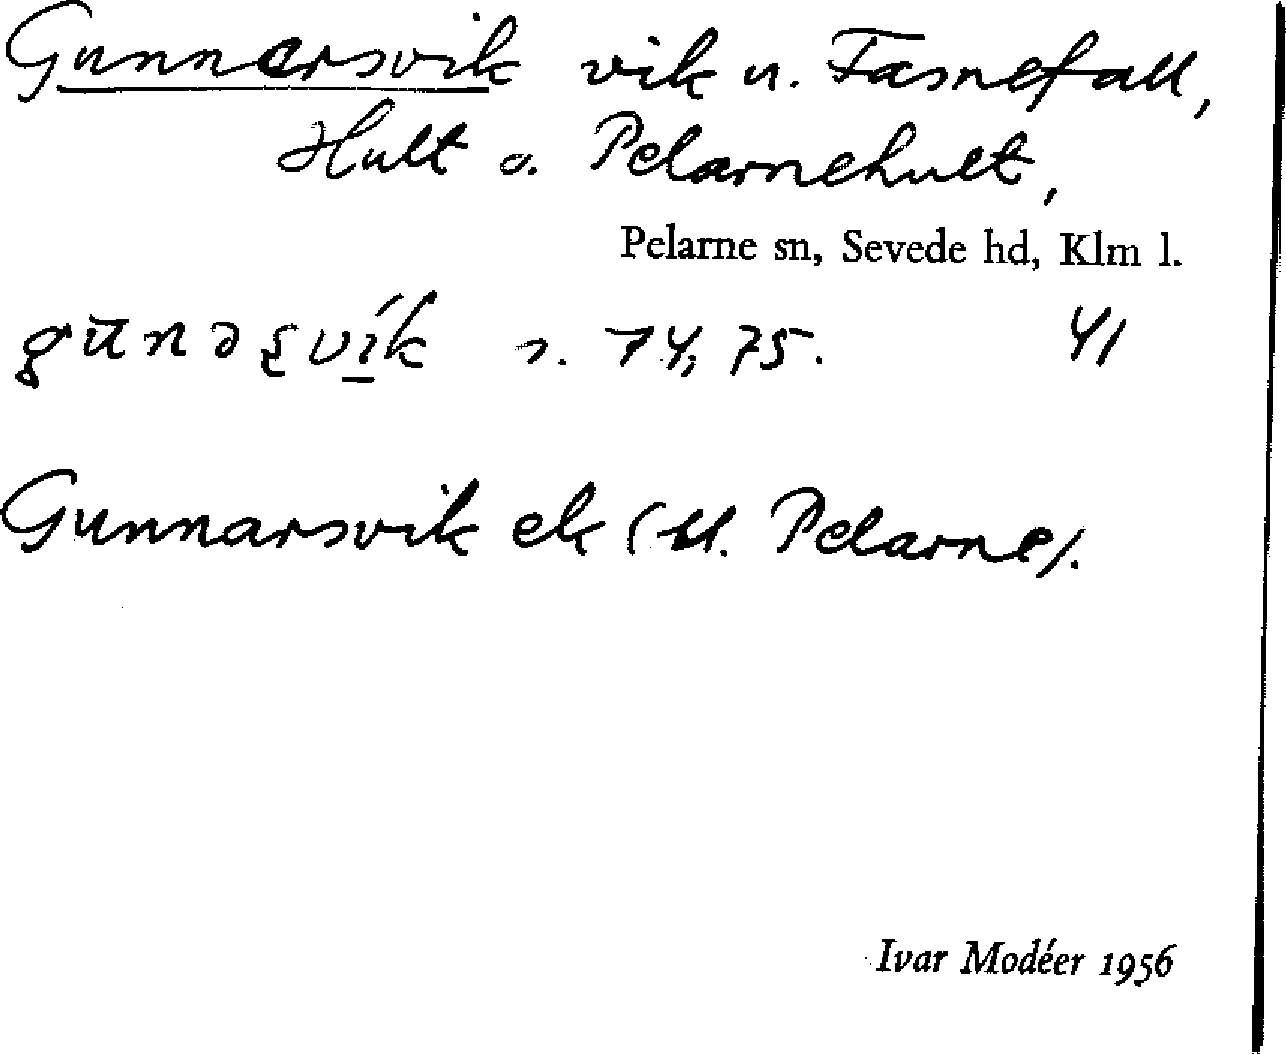 Gunnersvik vik u. Fasnefall,
Hult o. Pelarnehult,
Pelarne sn, Sevede hd, Klm l.
s. 74, 75. 41
Gunnarsvik ek (bl. Pelarne).
Ivar Modéer 1956